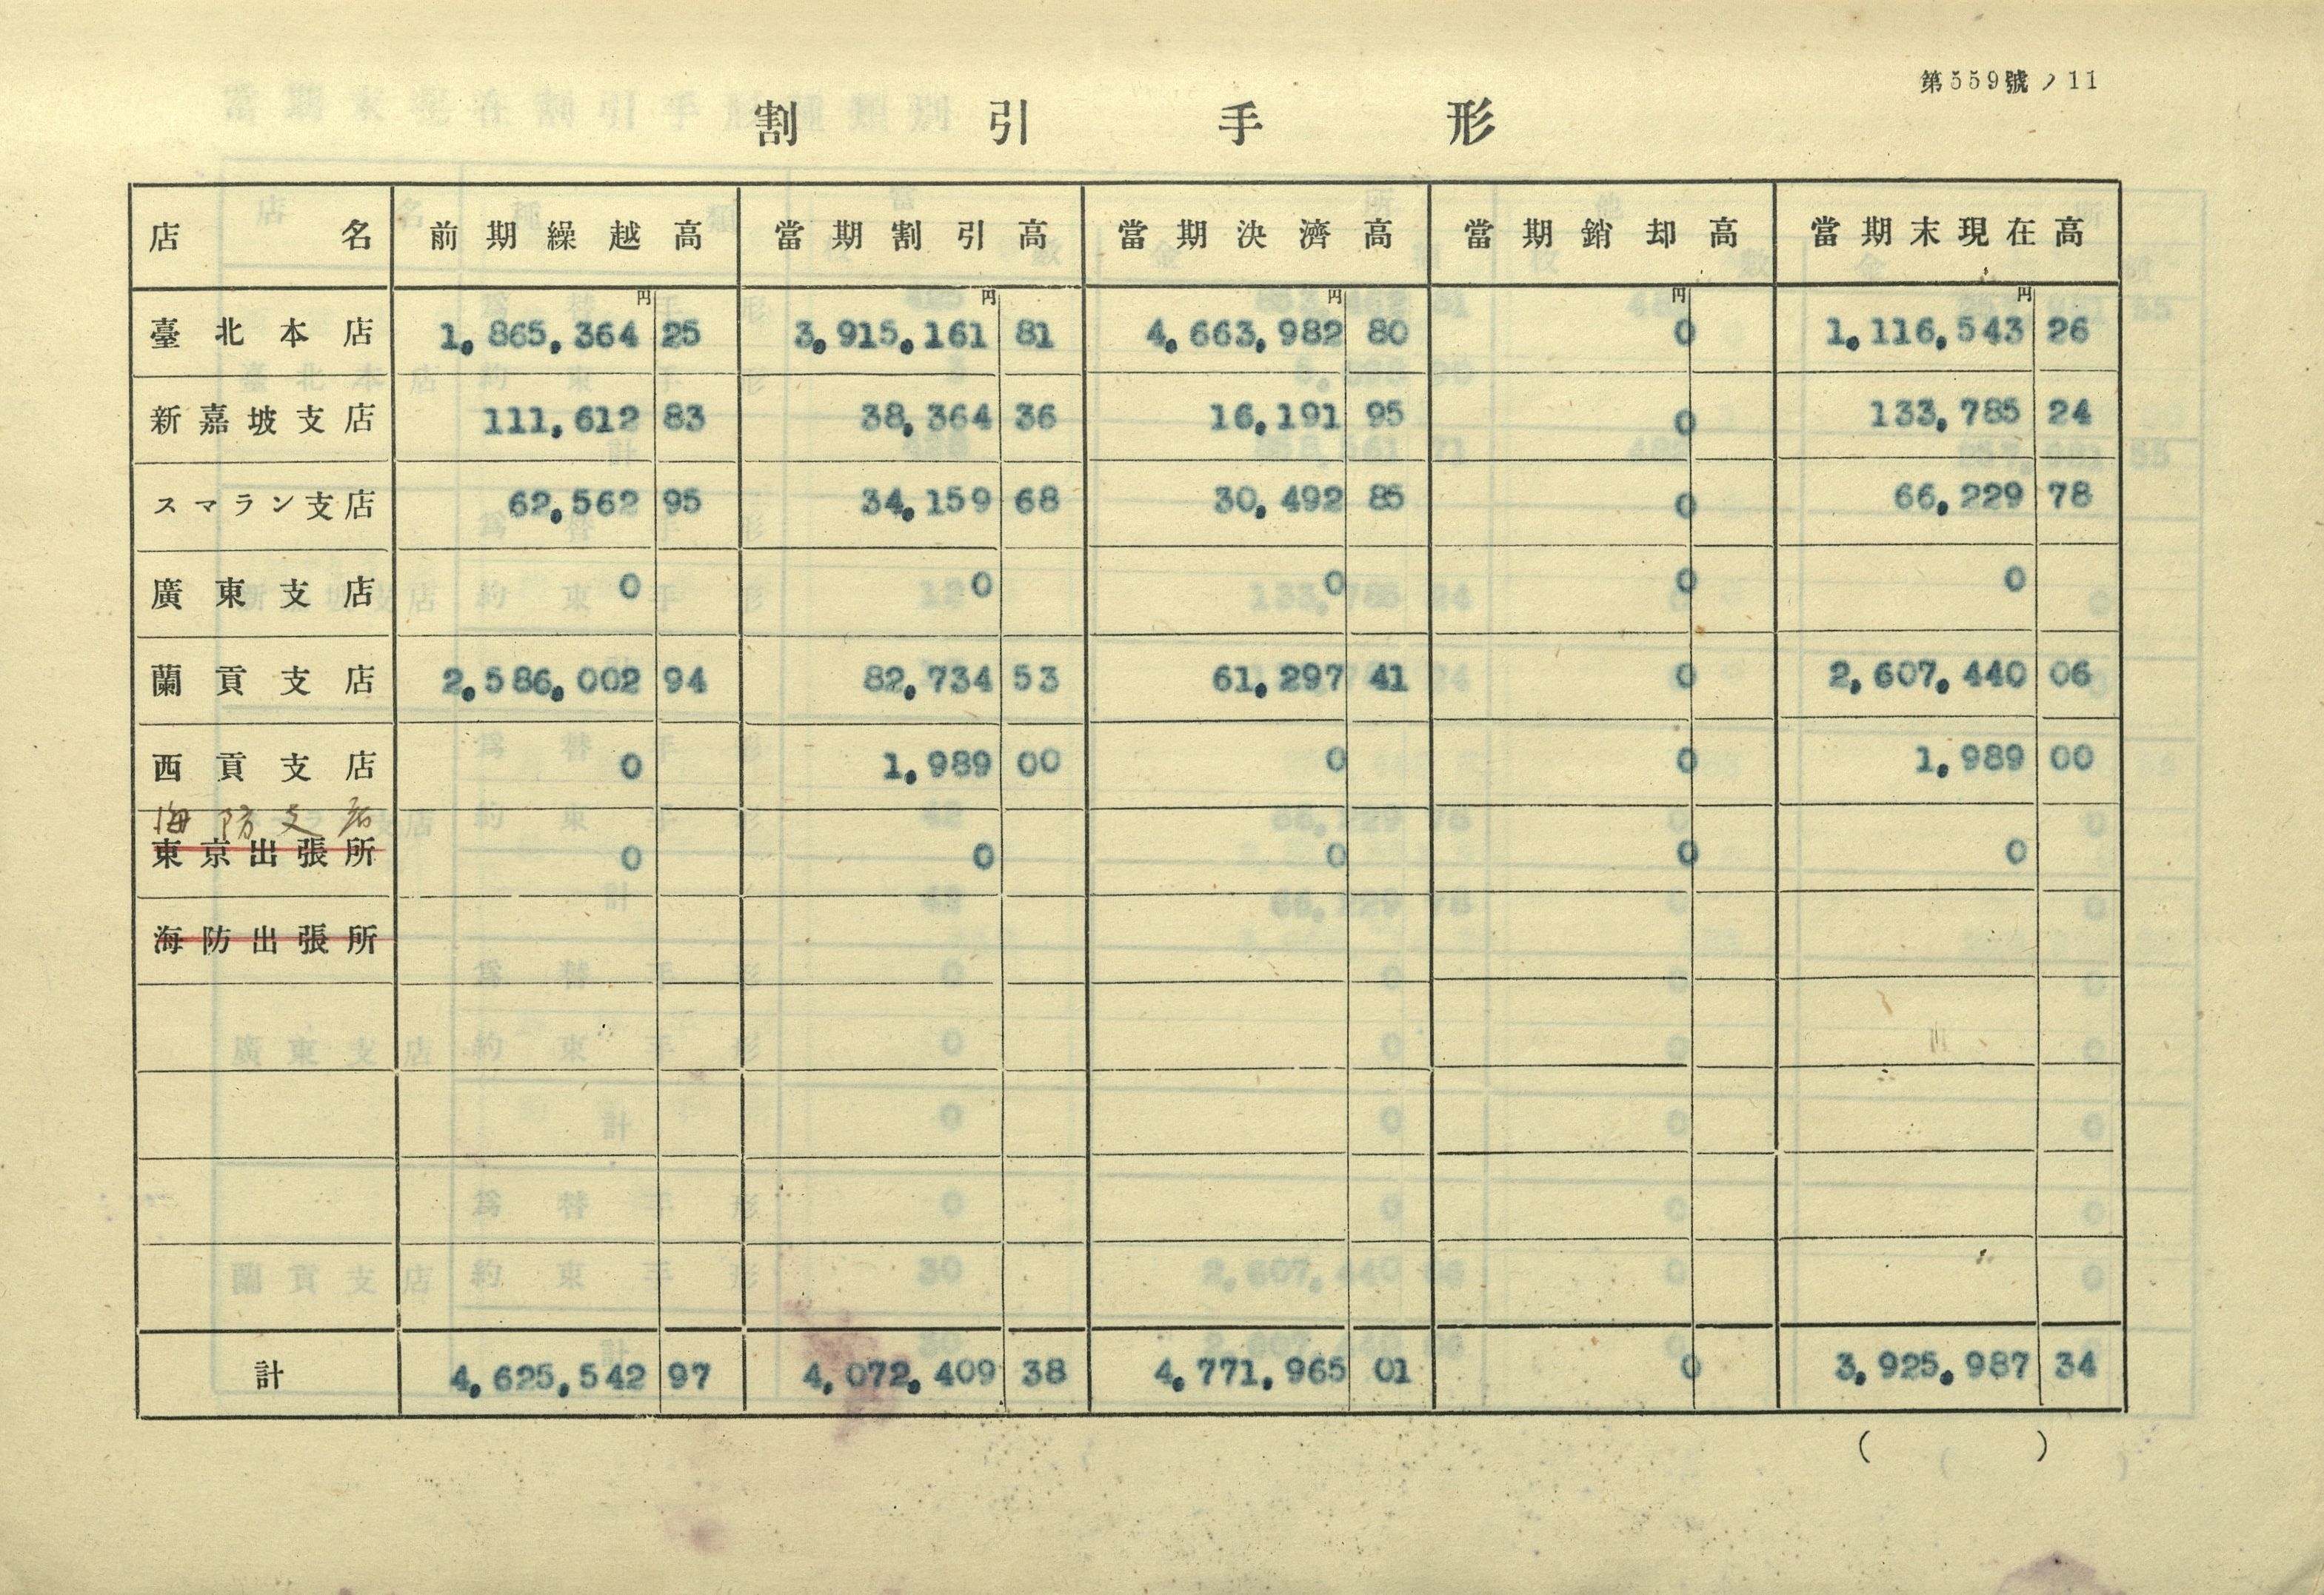 第559號ノ11
割引手形
店名 前期繰越高 當期割引高 當期決濟高 當期銷却高 當期末現在高
円 円 円 円 円
臺北本店 1,865,364 25 3,915,161 81 4,663,982 80 0 1,116,543 26
新嘉坡支店 111,612 83 38,364 36 16,191 95 0 133,785 24
スマラン支店 62,562 95 34,159 68 30,492 85 0 66,229 78
廣東支店 0 0 0 0 0
蘭貢支店 2,586,002 94 82,734 53 61,297 41 0 2,607,440 06
西貢支店 0 1,989 00 0 0 1,989 00
海防支店
東京出張所 0 0 0 0 0
海防出張所
計 4,625,542 97 4,072,409 38 4,771,965 01 0 3,925,987 34
( )